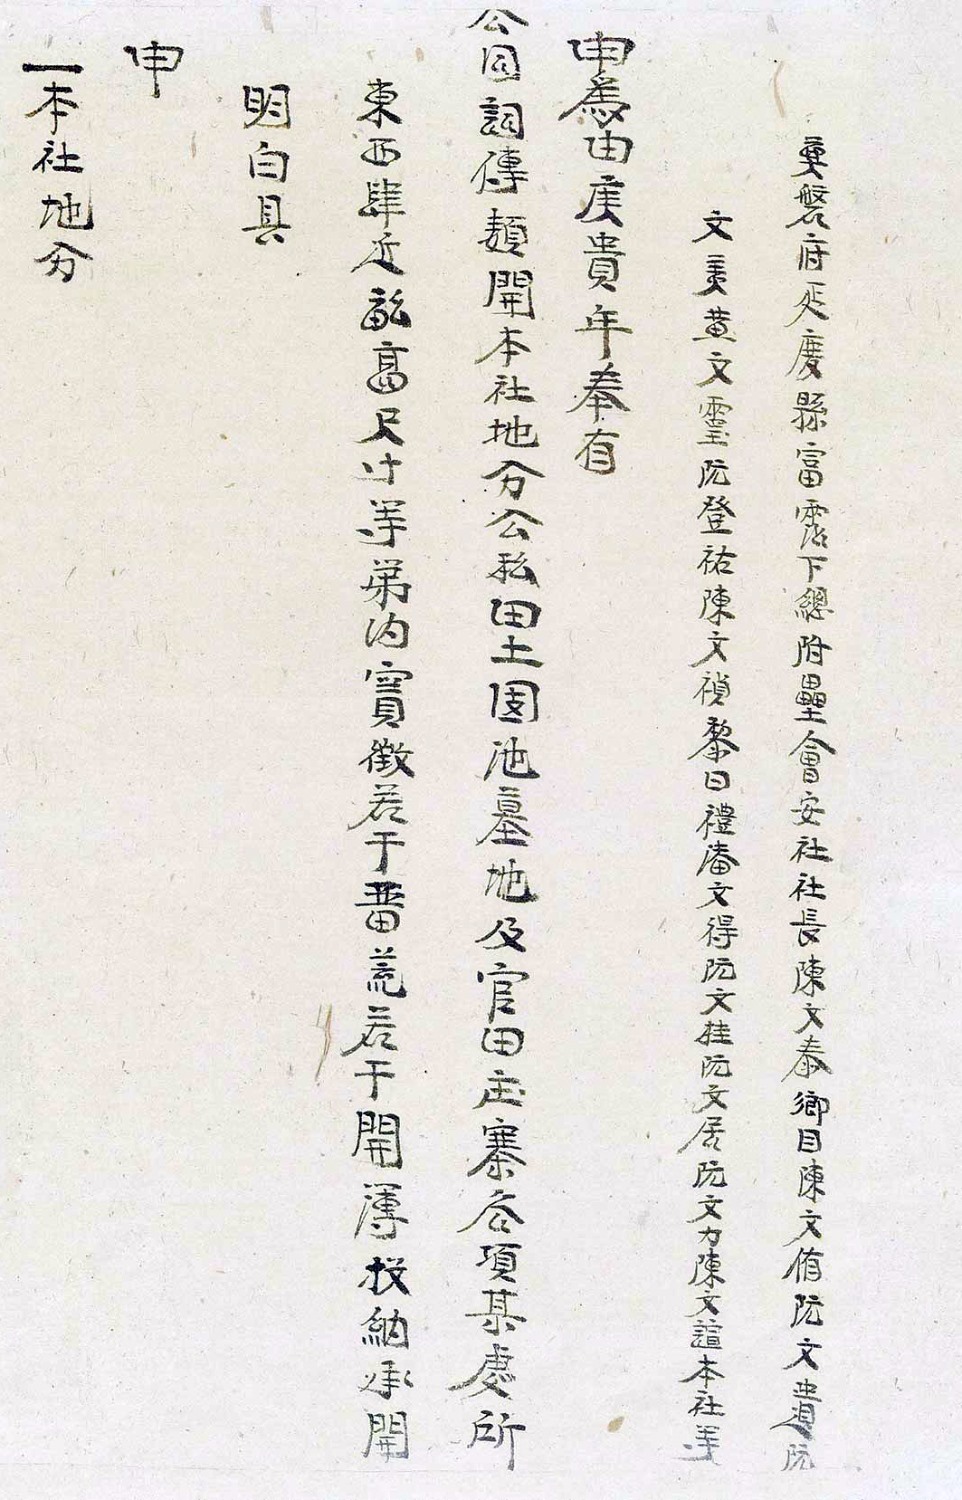 奠磐府延慶縣富霑下總附壘會安社社長陳文泰鄉目陳文脩阮文貴阮
文美黄文靈阮登祐陳文禎黎曰禮潘文得阮文桂阮文居阮文力陳文誼本社等
申為由庚貴年奉有
公同詞傳類開本社地分公私田土園池墓地及官田庄寨各項某處所
東西肆近畝高尺寸等第内實徵若干畨荒若干開簿投納承開
明白具
申
一本社地分